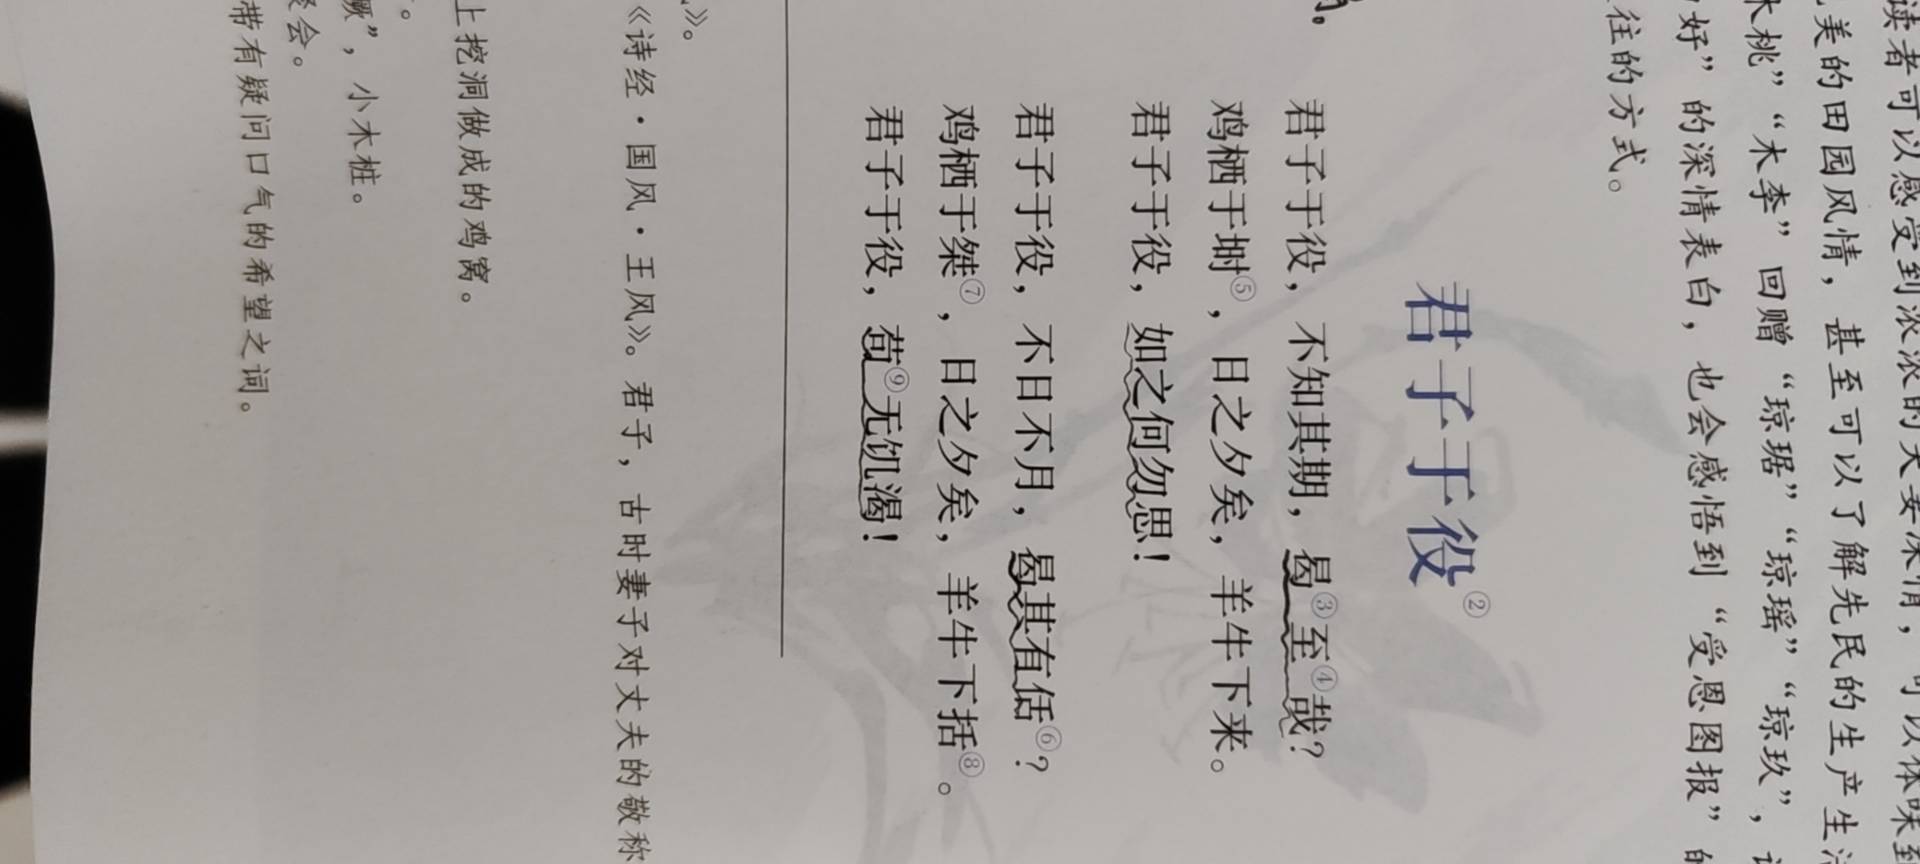 读者可以感受到浓浓的夫妻深情，可以体味到
美的田园风情，甚至可以了解先民的生产生活
木桃”“木李”回赠“琼琚”“琼瑶”“琼玖”，
好”的深情表白，也会感悟到“受恩图报”的
往的方式。
君子于役②
君子于役，不知其期，曷③至④哉？
鸡栖于埘⑤，日之夕矣，羊牛下来。
君子于役，如之何勿思！
君子于役，不日不月，曷其有佸⑥？
鸡栖于桀⑦，日之夕矣，羊牛下括⑧。
君子于役，苟⑨无饥渴！
》。
《诗经·国风·王风》。君子，古时妻子对丈夫的敬称
上挖洞做成的鸡窝。
。
橛”，小木桩。
聚会。
带有疑问口气的希望之词。